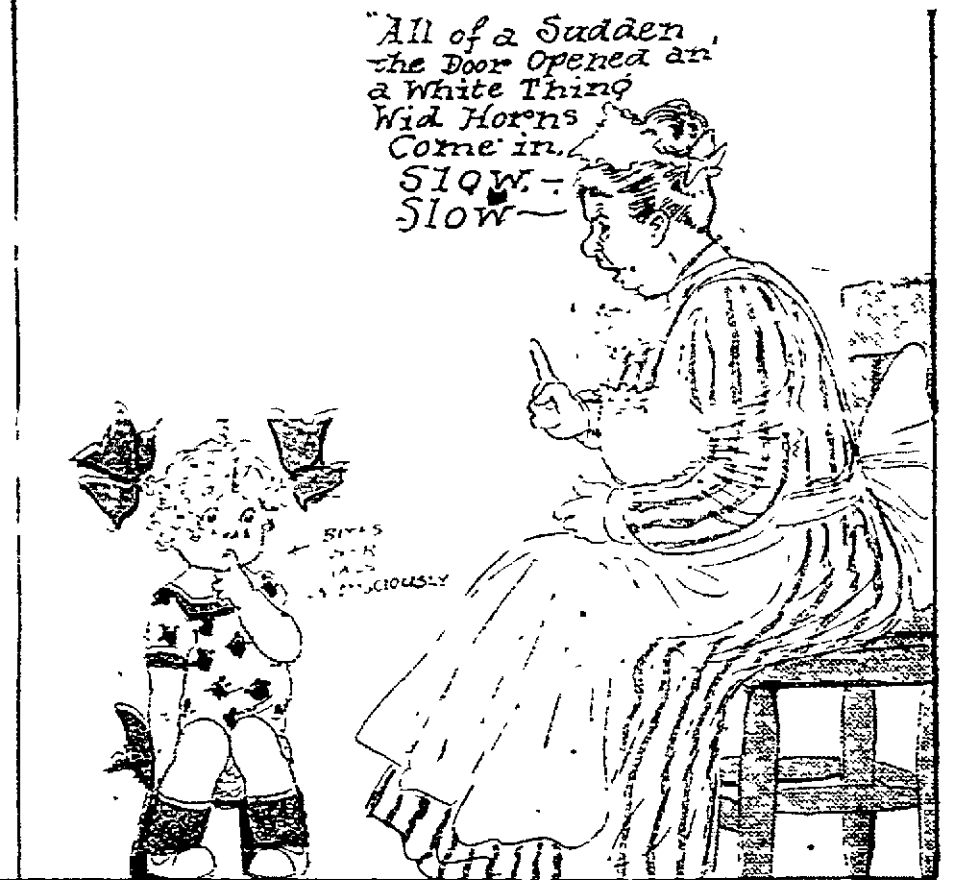 "All of a Sudden
the Door Opened an'
a White Thing
Wid Horns
Come in.
Slow. –
Slow —
BITES